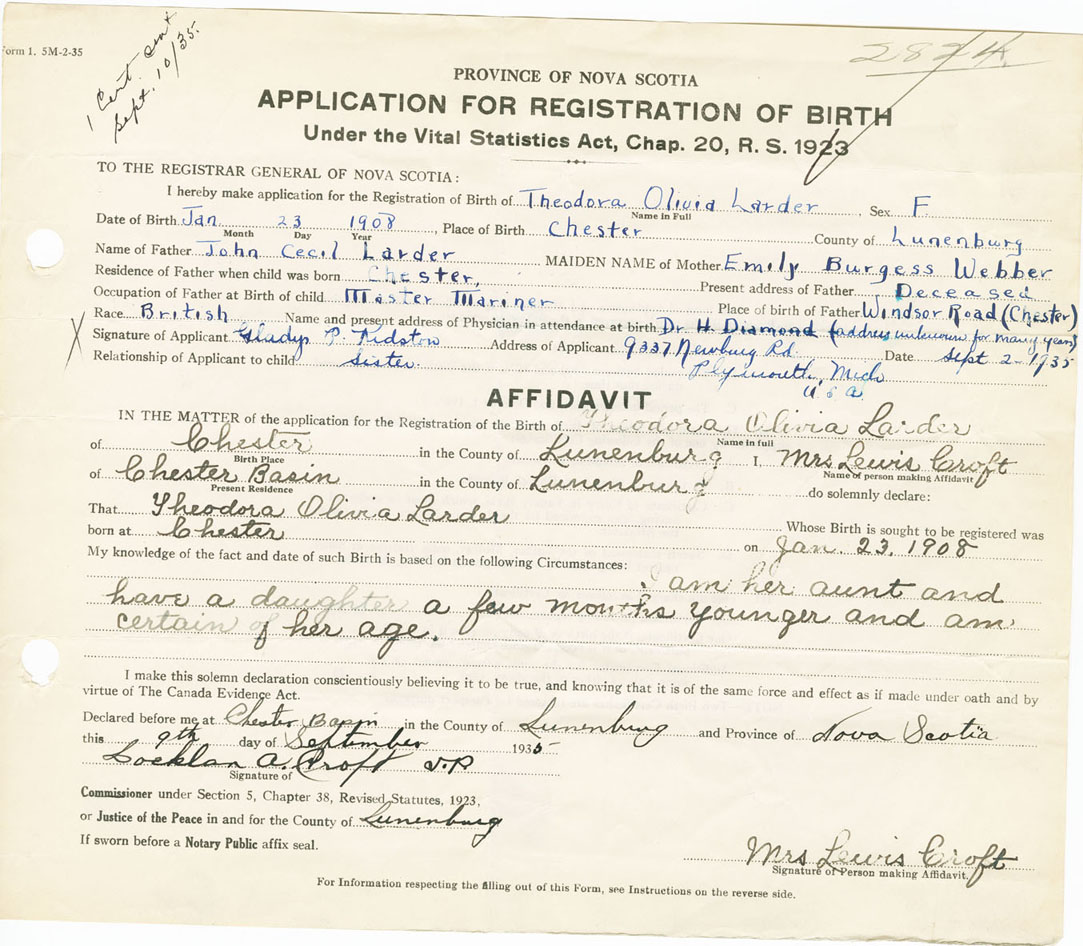 Form 1. 5M-2-35
1 Cert. sent
Sept. 10/35.
2824
PROVINCE OF NOVA SCOTIA
APPLICATION FOR REGISTRATION OF BIRTH
Under the Vital Statistics Act, Chap. 20, R. S. 1923
TO THE REGISTRAR GENERAL OF NOVA SCOTIA:
I hereby make application for the Registration of Birth of Theodora Olivia Larder, Sex F.
Name in Full
Date of Birth Jan. 23 1908, Place of Birth Chester County of Lunenburg
Month Day Year
Name of Father John Cecil Larder MAIDEN NAME of Mother Emily Burgess Webber
Residence of Father when child was born Chester, Present address of Father Deceased
Occupation of Father at Birth of child Master Mariner Place of birth of Father Windsor Road (Chester)
Race British Name and present address of Physician in attendance at birth Dr H. Diamond (address unknown for many years)
X Signature of Applicant Gladys P. Kidston Address of Applicant 9337 Newburg Rd. Date Sept 2-1935
Relationship of Applicant to child sister. Plymouth, Mich
U S a.
AFFIDAVIT
IN THE MATTER of the application for the Registration of the Birth of Theodora Olivia Larder
Name in full
of Chester in the County of Lunenburg I, Mrs Lewis Croft
Birth Place Name of person making Affidavit
of Chester Basin in the County of Lunenburg do solemnly declare:
Present Residence
That Theodora Olivia Larder Whose Birth is sought to be registered was
born at Chester on Jan. 23, 1908
My knowledge of the fact and date of such Birth is based on the following Circumstances:
I am her aunt and
have a daughter a few months younger and am
certain of her age.
I make this solemn declaration conscientiously believing it to be true, and knowing that it is of the same force and effect as if made under oath and by
virtue of The Canada Evidence Act.
Declared before me at Chester Basin in the County of Lunenburg and Province of Nova Scotia
this 9th day of September 1935
Locklan A. Croft J.P
Signature of
Commissioner under Section 5, Chapter 38, Revised Statutes, 1923,
or Justice of the Peace in and for the County of Lunenburg
If sworn before a Notary Public affix seal.
Mrs Lewis Croft
Signature of Person making Affidavit.
For Information respecting the filling out of this Form, see Instructions on the reverse side.